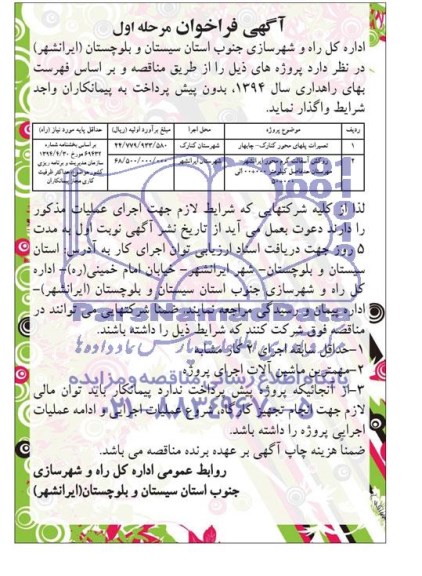 آگهی فراخوان مرحله اول
اداره کل راه و شهرسازی جنوب استان سیستان و بلوچستان (ایرانشهر)
در نظر دارد پروژه های ذیل را از طریق مناقصه و بر اساس فهرست
بهای راهداری سال ۱۳۹۴، بدون پیش پرداخت به پیمانکاران واجد
شرایط واگذار نماید.
ردیف موضوع پروژه محل اجرا مبلغ برآورد اولیه (ریال) حداقل پایه مورد نیاز (راه)
۱ تعمیرات پلهای محور کنارک- چابهار شهرستان کنارک ۲۴/۷۷۹/۹۳۳/۵۸۰ بر اساس بخشنامه شماره
۲ روکش آسفالت گرم محور ایرانشهر- شهرستان ایرانشهر ۶۸/۵۰۰/۰۰۰/۰۰۰
سازمان مدیریت و برنامه ریزی
کشور موضوع حداکثر ظرفیت
کاری مجاز پیمانکاران
لذا از کلیه شرکتهایی که شرایط لازم جهت اجرای عملیات مذکور
را دارند دعوت بعمل می آید از تاریخ نشر آگهی نوبت اول به مدت
۵ روز جهت دریافت اسناد ارزیابی توان اجرای کار به آدرس: استان
سیستان و بلوچستان- شهر ایرانشهر- خیابان امام خمینی(ره)- اداره
کل راه و شهرسازی جنوب استان سیستان و بلوچستان (ایرانشهر)-
اداره پیمان و رسیدگی مراجعه نمایند. ضمنا شرکتهایی می توانند در
مناقصه فوق شرکت کنند که شرایط ذیل را داشته باشند.
۱-حداقل سابقه اجرای ۲ کار مشابه
۲-مهمترین ماشین آلات اجرای پروژه
۳-از آنجائیکه پروژه پیش پرداخت ندارد پیمانکار باید توان مالی
لازم جهت انجام تجهیز کارگاه، شروع عملیات اجرایی و ادامه عملیات
اجرایی پروژه را داشته باشد.
ضمنا هزینه چاپ آگهی بر عهده برنده مناقصه می باشد.
روابط عمومی اداره کل راه و شهرسازی
جنوب استان سیستان و بلوچستان(ایرانشهر)
پایگاه اطلاع رسانی مناقصه و مزایده